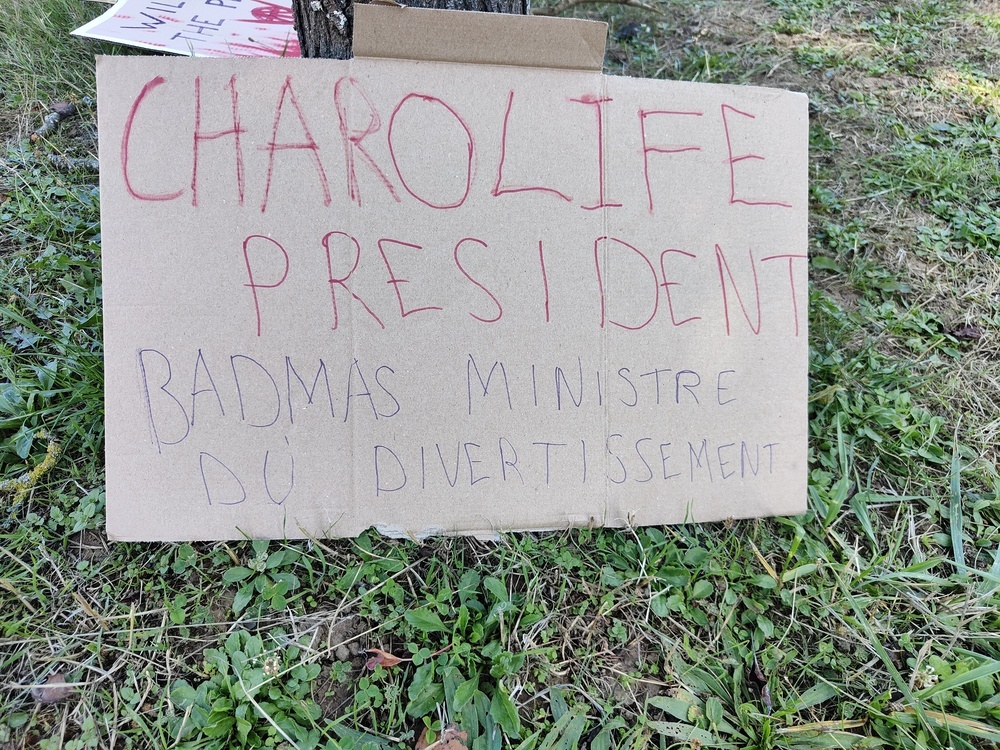 WIL
THE P
CHAROLIFE
PRESIDENT
BADMAS MINISTRE
DU DIVERTISSEMENT